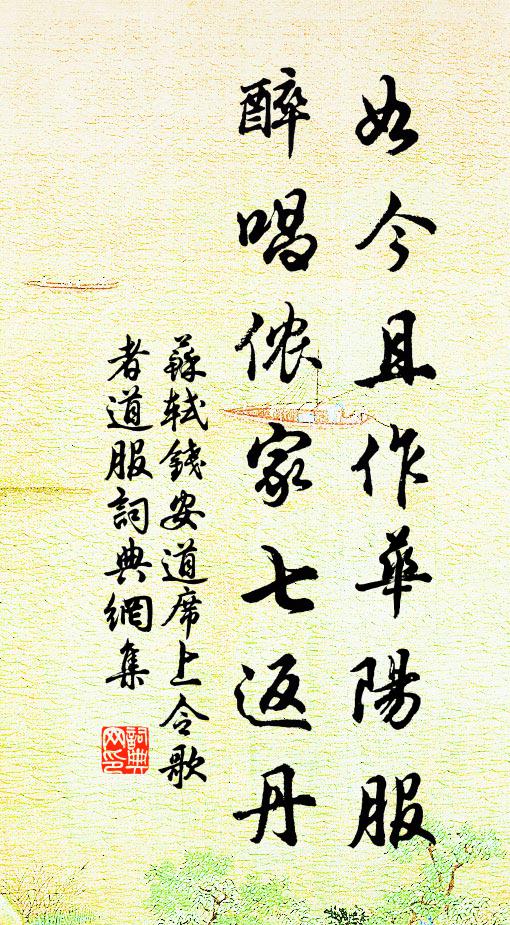 如今且作華陽服
醉唱儂家七返丹
蘇軾錢安道席上令歌
者道服詞典網集
詞典
网印